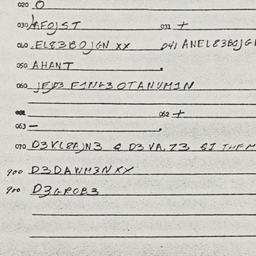 020 O
030 AFOJST 031 +
040 EL83BOJGN XX 041 ANEL83BOJGI
050 AHANT
060 JFJD3 F1NG3OTANUM1N
062 +
063 —
070 D3VL8AJN3 & D3VA.Z3 &I THFM
900 D3DAWM3NXX
900 D3GROB3